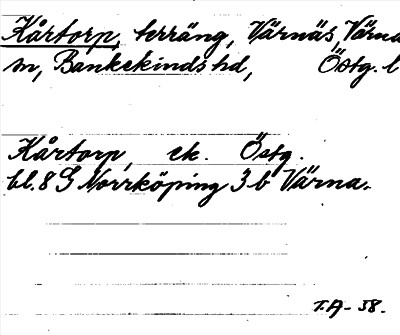 Kårtorp, terräng, Värnäs, Värna
sn, Bankekinds hd, Östg. l
Kårtorp, ek. Östg.
bl. 8 G Norrköping 3 b Värna.
T.A-38.